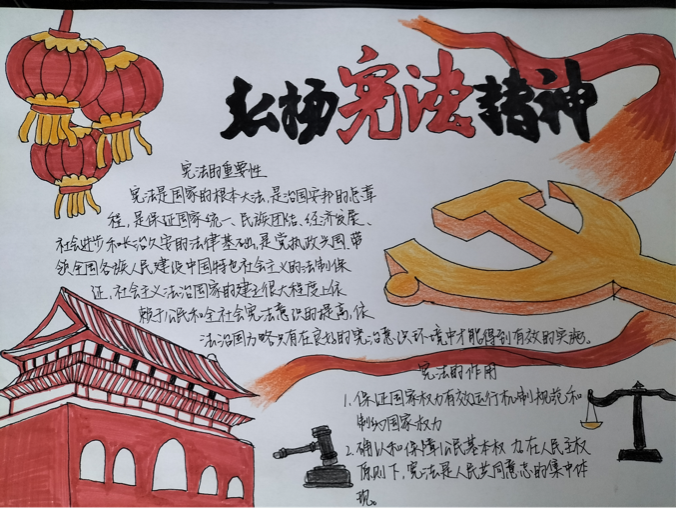 弘扬宪法精神
宪法的重要性
宪法是国家的根本大法,是治国安邦的总章
程,是保证国家统一、民族团结、经济发展、
社会进步和长治久安的法律基础,是党执政兴国,带
领全国各族人民建设中国特色社会主义的法制保
证,社会主义法治国家的建立很大程度上依
赖于公民和全社会宪法意识的提高,依
法治国方略只有在良好的宪治意识环境中才能得到有效的实施。
宪法的作用
1.保证国家权力有效运行机制规范和
制约国家权力
2.确认和保障公民基本权力,在人民主权
原则下,宪法是人民共同意志的集中体
现。